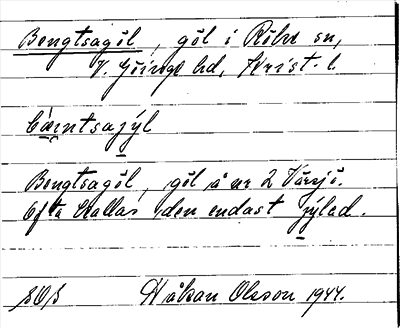 Bengtsagöl, göl i Röke sn,
V. Göinge hd, Krist. l.
bæntsajýl
Bengtsagöl, göl å nr 2 Värsjö.
Ofta kallas den endast jýlad.
SOS Håkan Olsson 1944.